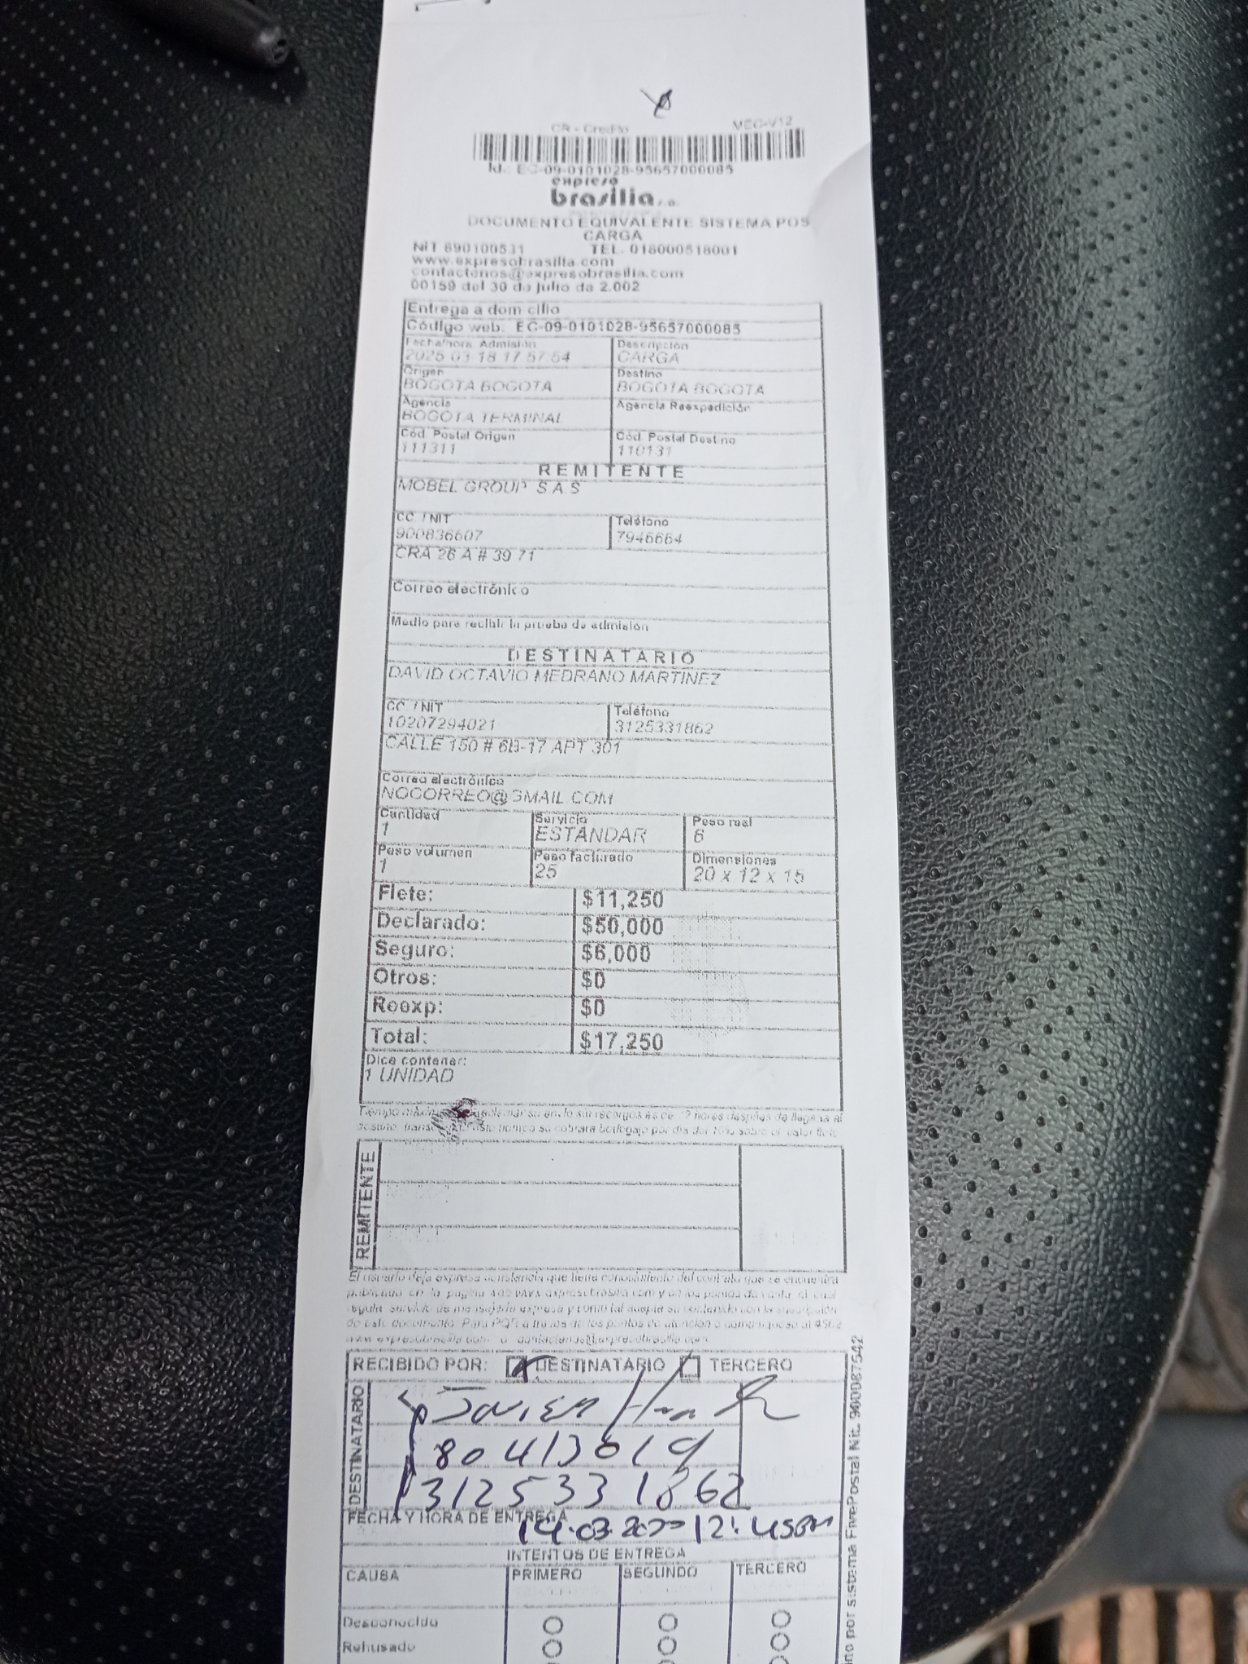 CR - Credito MEC-V12
Id.: EG-09-0101028-95657000085
expreso
brasilia s.a.
DOCUMENTO EQUIVALENTE SISTEMA POS
CARGA
NIT 890100531 TEL. 018000518001
www.expresobrasilia.com
contactenos@expresobrasilia.com
00159 del 30 de Julio de 2.002
Entrega a dom cilio
Código web: EG-09-0101028-95657000085
Fecha/hora Admisión Descripción
2025 03 18 17 57:54 CARGA
Origen Destino
BOGOTA BOGOTA BOGOTA BOGOTA
Agencia Agencia Reexpedición
BOGOTA TERMINAL
Cód. Postal Origen Cód. Postal Destino
111311 110131
REMITENTE
MOBEL GROUP S A S
CC / NIT Teléfono
900836607 7946664
CRA 26 A # 39 71
Correo electrónico
Medio para recibir la prueba de admisión
DESTINATARIO
DAVID OCTAVIO MEDRANO MARTINEZ
CC / NIT Teléfono
10207294021 3125331862
CALLE 150 # 6B-17 APT 301
Correo electrónico
NOCORREO@GMAIL COM
Cantidad Servicio Peso real
1 ESTÁNDAR 6
Peso volumen Peso facturado Dimensiones
1 25 20 x 12 x 15
Flete: $11,250
Declarado: $50,000
Seguro: $6,000
Otros: $0
Reexp: $0
Total: $17,250
Dice contener:
1 UNIDAD
REMITENTE
El usuario deja expresa constancia que tiene conocimiento del contrato que se encuentra
RECIBIDO POR: DESTINATARIO TERCERO
DESTINATARIO
JAVIER
80413619
3125331862
FECHA Y HORA DE ENTREGA
INTENTOS DE ENTREGA
CAUSA PRIMERO SEGUNDO TERCERO
Desconocido
Rehusado
por sistema FivePostal Nit. 900087542